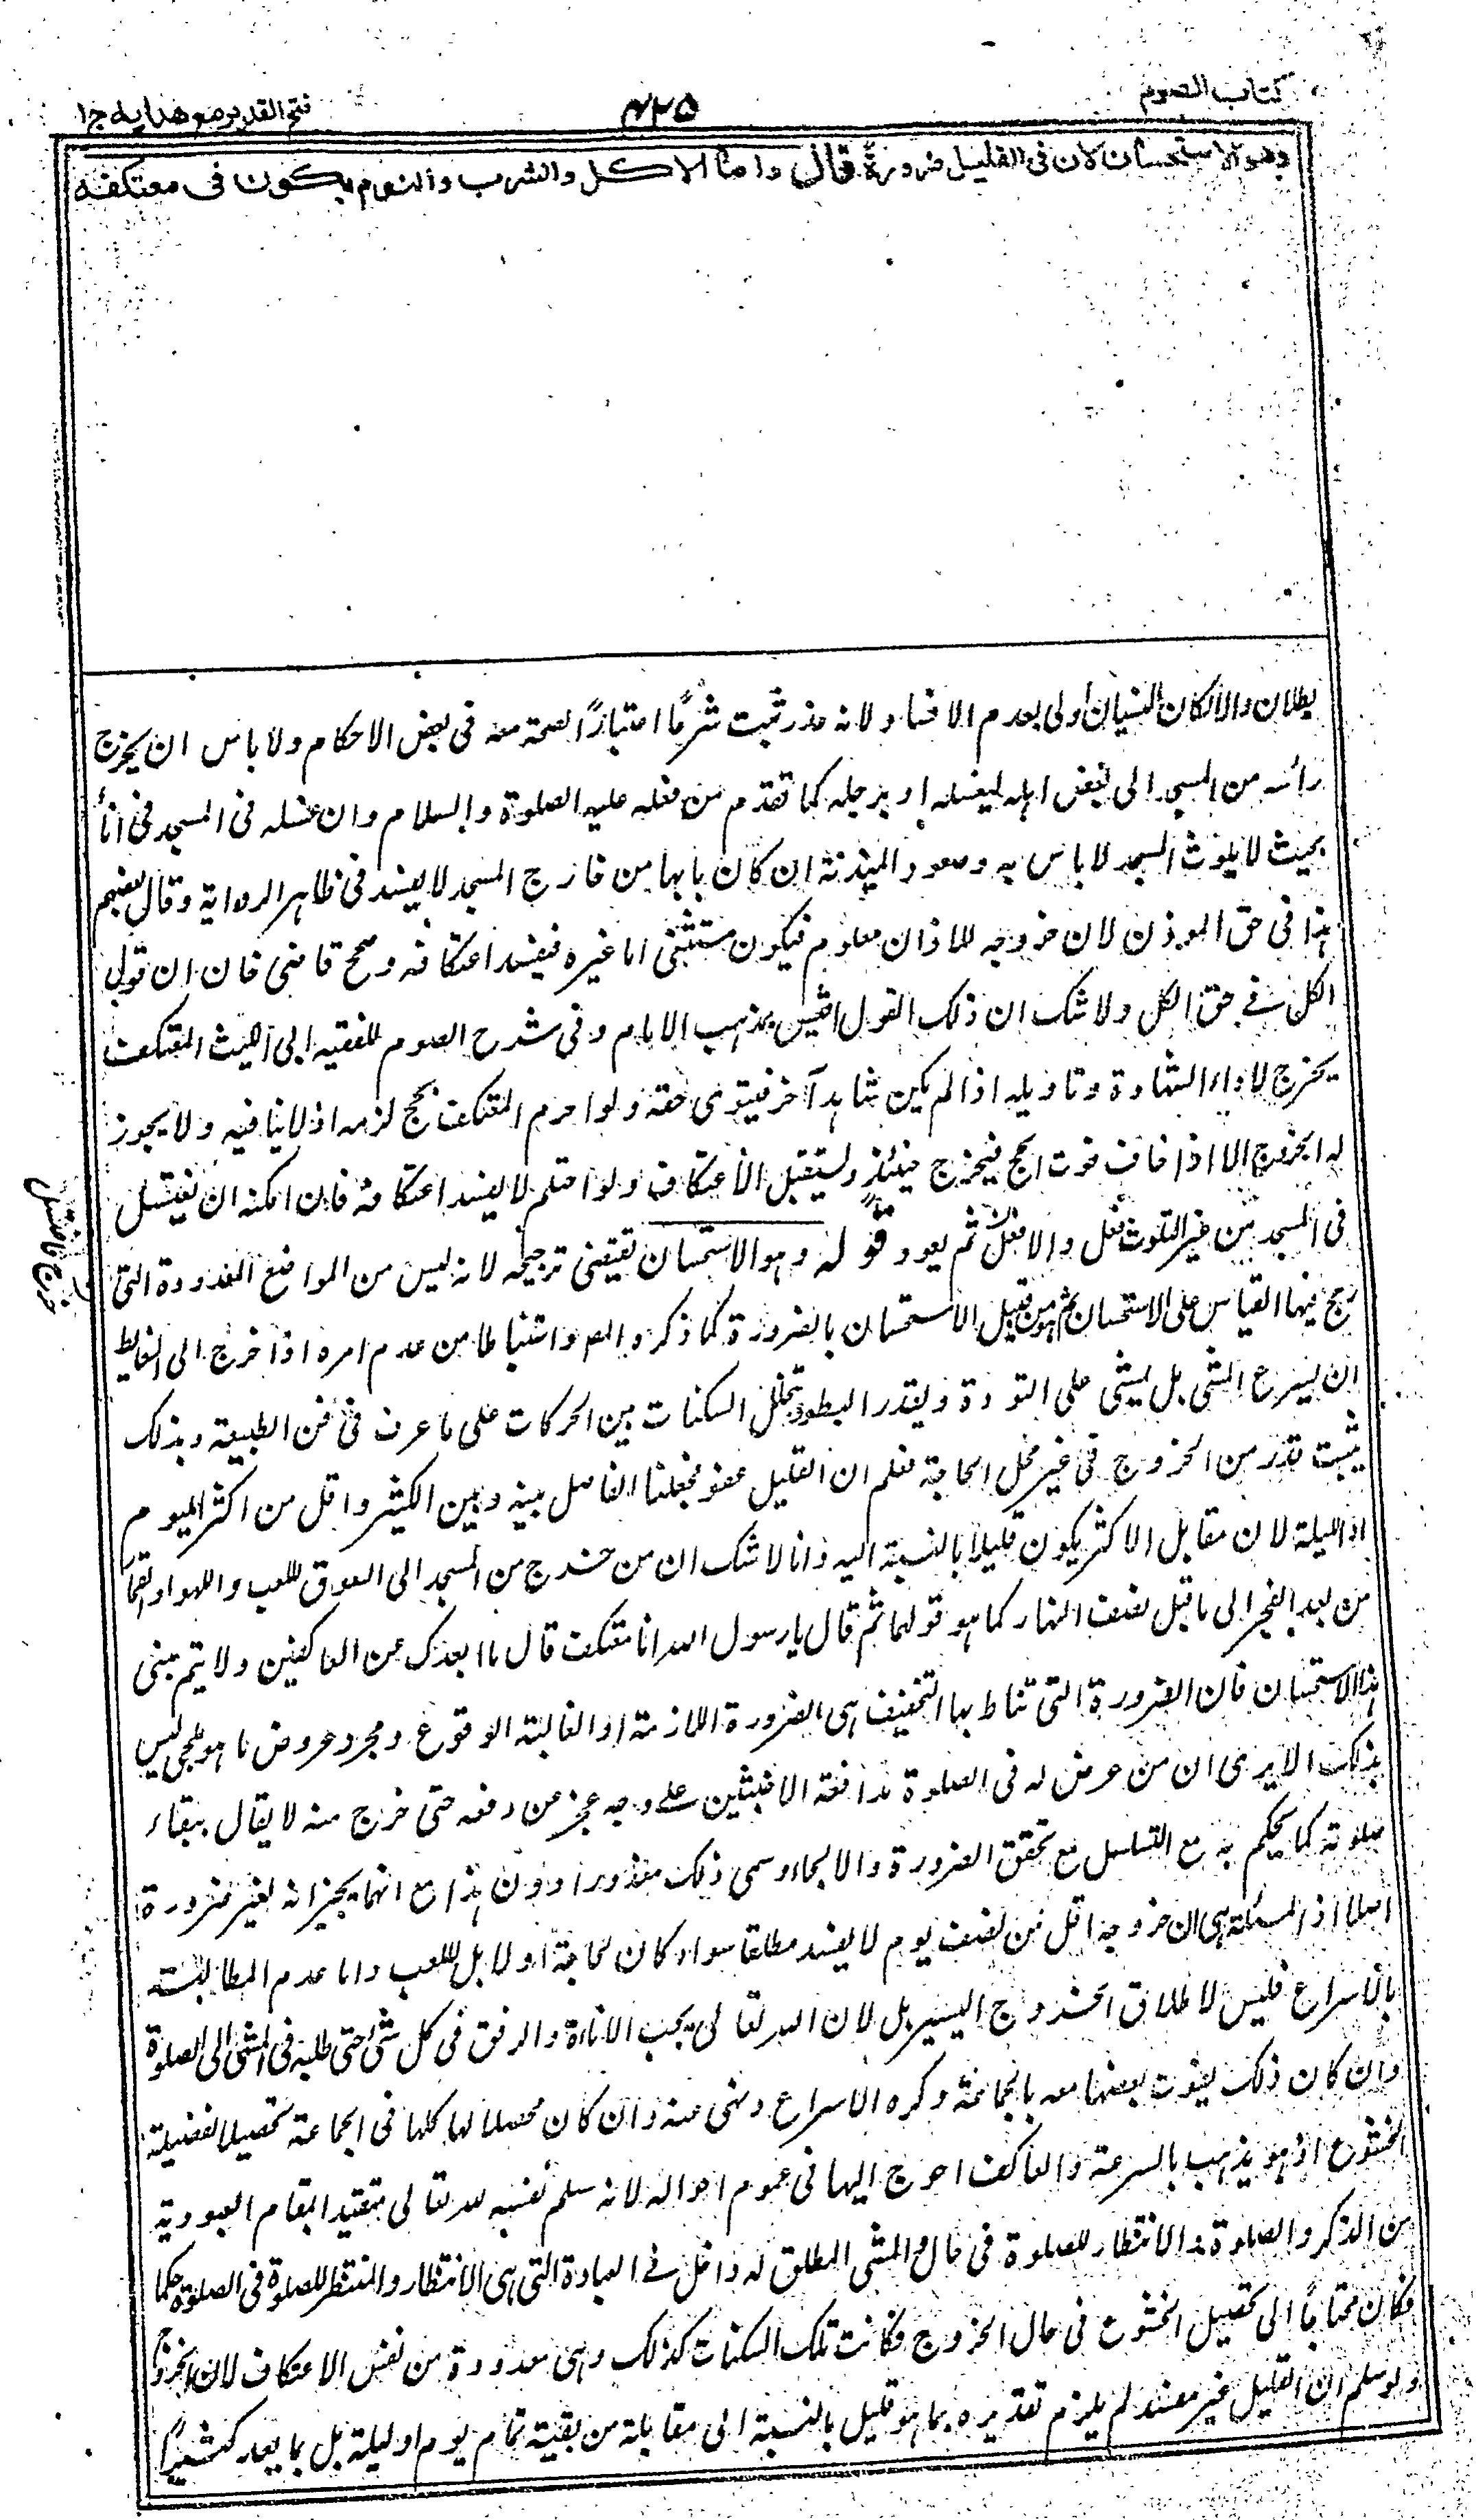 كتاب الصوم
۴۲۵
فتح القدير مع هدايه ج ۱
وهو الاستحسان لان فى القليل ضرورة قال واما الاكل والشرب والنوم يكون فى معتكفه
بطلان والا لكان النسيان أولى بعدم الافساد لانه عذر ثبت شرعًا اعتبارًا لصحة معه فى بعض الاحكام ولا باس ان يخرج
رأسه من المسجد الى بعض اهله ليغسله او يرجله كما تقدم من فعله عليه الصلوة والسلام وان غسله فى المسجد فى اناء
بحيث لا يلوث المسجد لا باس به وصعود الميذنة ان كان بابها من خارج المسجد لا يفسد فى ظاهر الرواية وقال بعضهم
هذا فى حق الموذن لان خروجه للاذان معلوم فيكون مستثنى اما غيره فيفسد اعتكافه وصحح قاضى خان ان قول
الكل فى حق الكل ولا شك ان ذلك القول اقيس بمذهب الامام وفى شرح الصوم للفقيه ابى الليث المعتكف
يخرج لاداء الشهادة وتاويله اذا لم يكن شاهد آخر فيتوى حقه ولو احرم المعتكف بحج لزمه اذ لا ينافيه ولا يجوز
له الخروج الا اذا خاف فوت الحج فيخرج حينئذٍ ويستقبل الاعتكاف ولو احتلم لا يفسد اعتكافه فان امكنه ان يغتسل
فى المسجد من غير التلوث فعل والا فعل ثم يعود قوله وهو الاستحسان يقتضى ترجيحه لانه ليس من المواضع المعدودة التى
رجح فيها القياس على الاستحسان ثم هو من قبيل الاستحسان بالضرورة كما ذكره المص واستنباطا من عدم امره اذا خرج الى الغايط
ان يسرع المشى بل يمشى على التودة وبقدر البطوء تخلل السكنات بين الحركات على ما عرف فى فن الطبيعة وبذلك
يثبت قدر من الخروج فى غير محل الحاجة فعلم ان القليل عفو فجعلنا الفاصل بينه وبين الكثير واقل من اكثر اليوم
او الليلة لان مقابل الاكثر يكون قليلا بالنسبة اليه وانا لا شك ان من خرج من المسجد الى السوق للعب واللهو او القمار
من بعد الفجر الى ما قبل نصف النهار كما هو قولهما ثم قال يا رسول الله انا معتكف قال ما ابعدك عن العاكفين ولا يتم مبنى
هذا الاستحسان فان الضرورة التى تناط بها التخفيف هى الضرورة اللازمة او الغالبة الوقوع ومجرد عروض ما هو ملجى ليس
بذلك الا يرى ان من عرض له فى الصلوة مدافعة الاخبثين على وجه عجز عن دفعه حتى خرج منه لا يقال ببقاء
صلوته كما يحكم به مع التسلسل مع تحقق الضرورة والالجاء وسمى ذلك معذورا دون هذا مع انهما يجيزانه لغير ضرورة
اصلا اذ المسئلة هى ان خروجه اقل من نصف يوم لا يفسد مطلقا سواء كان لحاجة أو لا بل للعب واما عدم المطالبة
بالاسراع فليس لاطلاق الخروج اليسير بل لان الله تعالى يحب الاناءة والرفق فى كل شئ حتى طلبه فى المشى الى الصلوة
وان كان ذلك يفوت بعضها معه بالجماعة وكره الاسراع ونهى عنه وان كان محصلا لها كلها فى الجماعة تحصيلا لفضيلة
الخشوع اذ هو يذهب بالسرعة والعاكف احوج اليها فى عموم احواله لانه سلم نفسه لله تعالى متقيدا بمقام العبودية
من الذكر والصلوة والانتظار للصلوة فى حال المشى المطلق له داخل فى العبادة التى هى الانتظار والمنتظر للصلوة فى الصلوة حكما
فكان محتاجًا الى تحصيل الخشوع فى حال الخروج فكانت تلك السكنات كذلك وهى معدودة من نفس الاعتكاف لا من الخروج
ولو سلم ان القليل غير مفسد لم يلزم تقديره بما هو قليل بالنسبة الى مقابلة من بقية تمام يوم او ليلة بل بما يعد كثيرًا
خرج فاغتسل